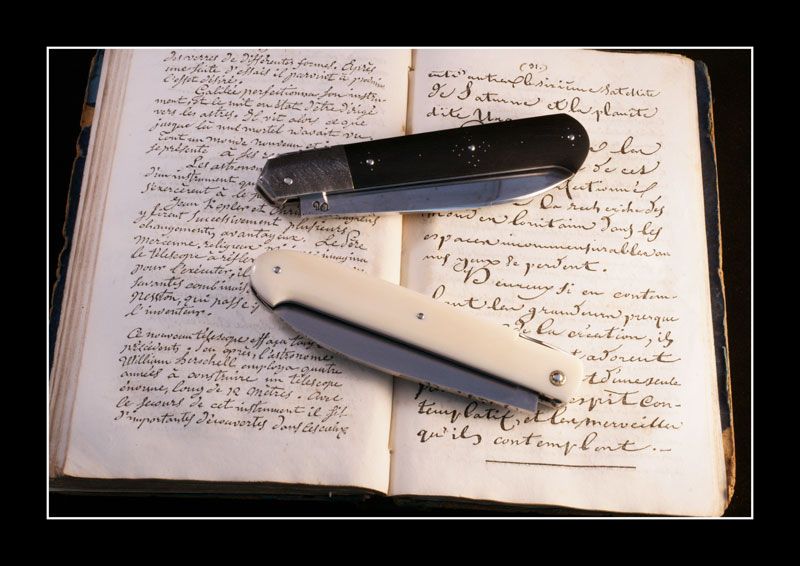 des verres de différentes formes. Après
une suite d'essais il parvint à
l'effet désiré.
Galilée perfectionna son instru-
ment et le mit en état d'être dirigé
vers les astres. Il vit alors ce que
jusque là nul mortel n'avait vu
Tout un monde nouveau et
se présente à ses
Les astrono
d'un instrument
s'exercèrent à le
Jean Kepler et
y firent successivement plusieurs
changements avantageux. Le Père
Mercenne, religieux
le télescope à réflex imagina
pour l'exécuter, il
savantes combinais
qui passe
l'inventeur.
Ce nouveau télescope effaça tous
précédents. Peu après, l'astronome
William Herschell employa quatre
années à construire un télescope
énorme, long de 12 mètres. Avec
le secours de cet instrument il fit
d'importantes découvertes dans les cieux
(91.)
entr'autres le sixième Satellite
de Saturne et la planète
dite
la
de ces
recherche des
dans les
espaces incommensurables où
nos yeux se perdent.
Heureux si en contem-
plant la grandeur presque
de la création, ils
adorent
d'une seule
esprit con-
templatif, et les merveilles
qu'ils contemplent. —